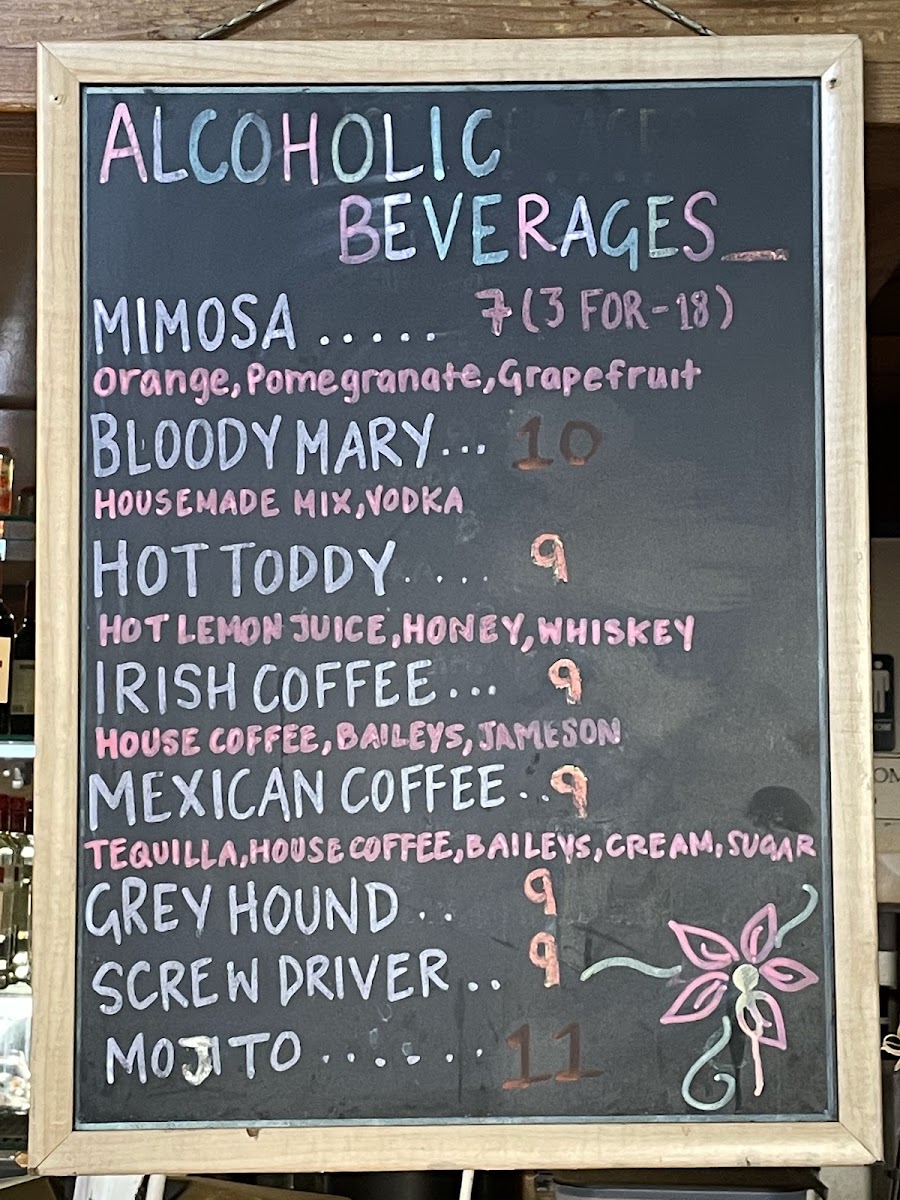 ALCOHOLIC
BEVERAGES_
MIMOSA ..... 7 (3 FOR-18)
Orange, Pomegranate, Grapefruit
BLOODY MARY... 10
HOUSEMADE MIX, VODKA
HOT TODDY.... 9
HOT LEMON JUICE, HONEY, WHISKEY
IRISH COFFEE... 9
HOUSE COFFEE, BAILEYS, JAMESON
MEXICAN COFFEE .. 9
TEQUILLA, HOUSE COFFEE, BAILEYS, CREAM, SUGAR
GREY HOUND .. 9
SCREW DRIVER .. 9
MOJITO ....... 11